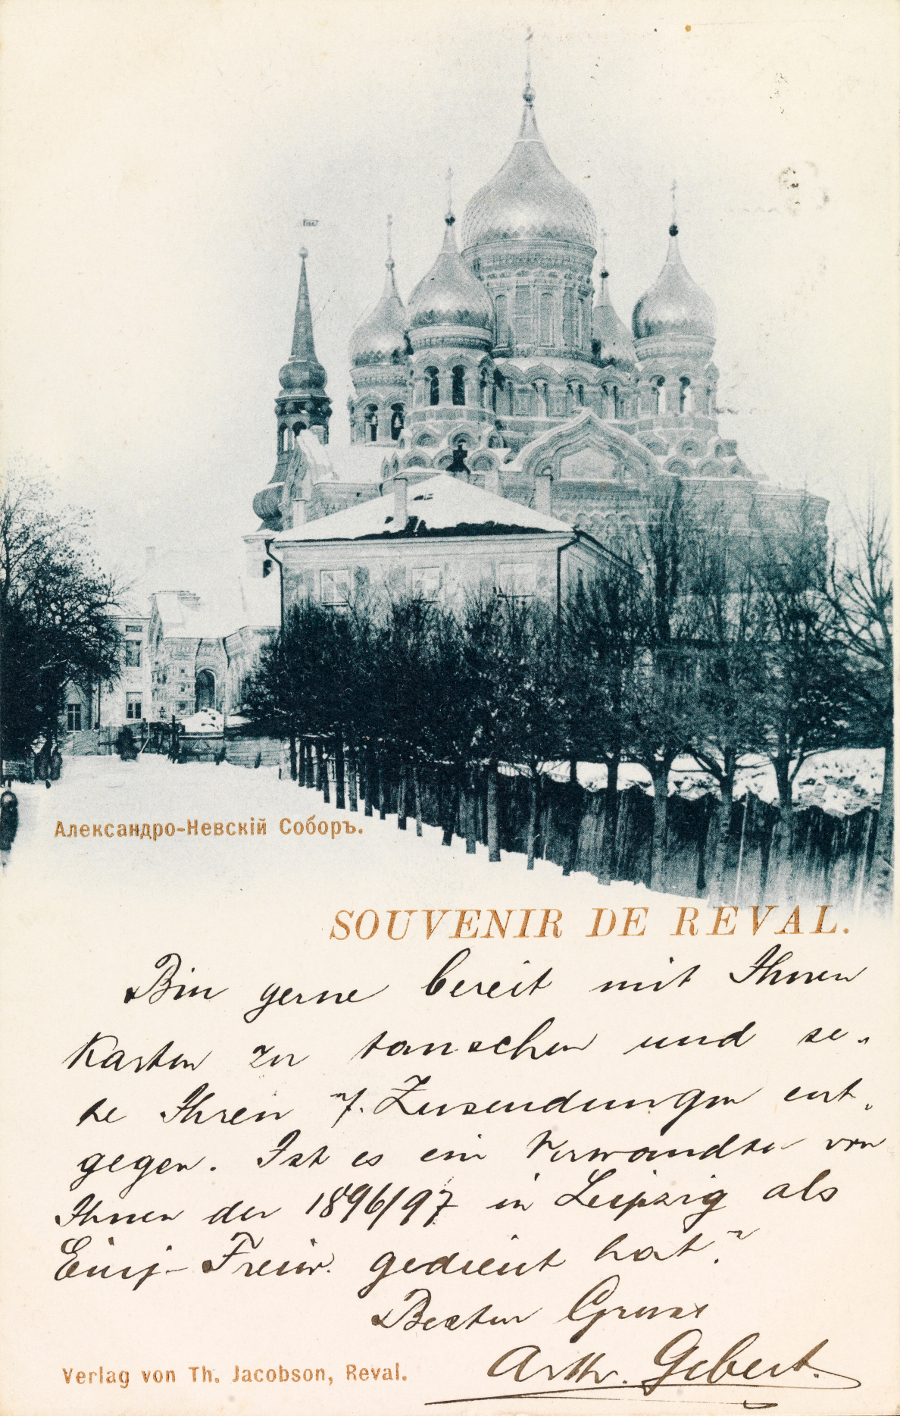 Александро-Невскій Соборъ.
SOUVENIR DE REVAL.
Bin gerne bereit mit Ihnen
Karten zu tauschen und se-
he Ihren f. Zusendungen ent-
gegen. Ist es ein Verwandter von
Ihnen der 1896/97 in Leipzig als
Einj-Freiw. gedient hat?
Bester Gruss
Arth. Gebert.
Verlag von Th. Jacobson, Reval.